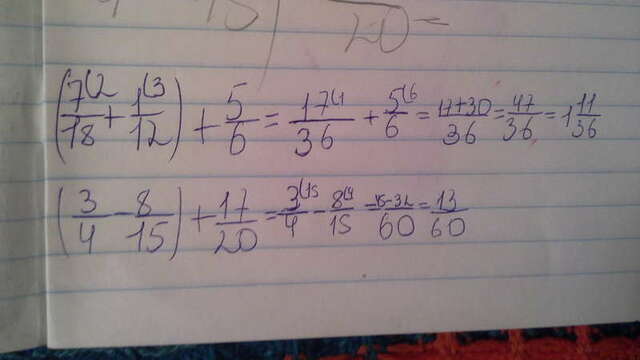 20=
(7(2/18 + 1(3/12) + 5/6 = 17(1/36 + 5(6/6 = 17+30/36 = 47/36 = 1 11/36
(3/4 - 8/15) + 17/20 = 3(15/4 - 8(4/15 = 45-32/60 = 13/60